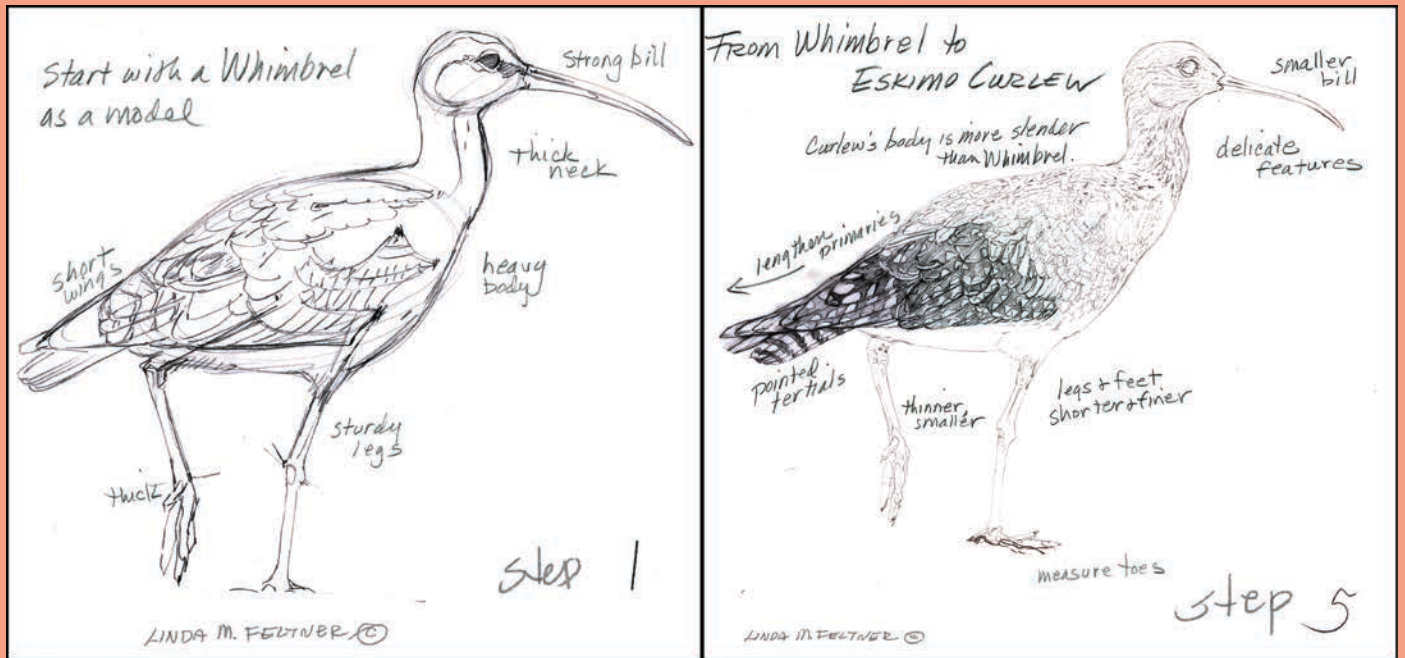 Start with a Whimbrel
as a model
Strong bill
thick
neck
short
wings
heavy
body
sturdy
legs
thick
step 1
LINDA M. FELTNER ©
From Whimbrel to
ESKIMO CURLEW
smaller
bill
Curlew's body is more slender
than Whimbrel.
delicate
features
lengthen
primaries
pointed
tertials
thinner,
smaller
legs & feet
shorter & finer
measure toes
step 5
LINDA M FELTNER ©